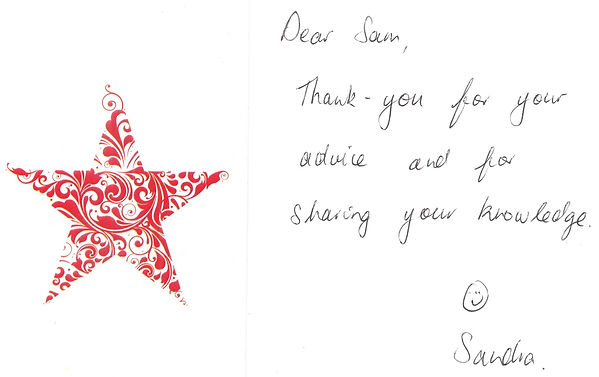 Dear Sam,
Thank-you for your
advice and for
sharing your knowledge.
Sandra.